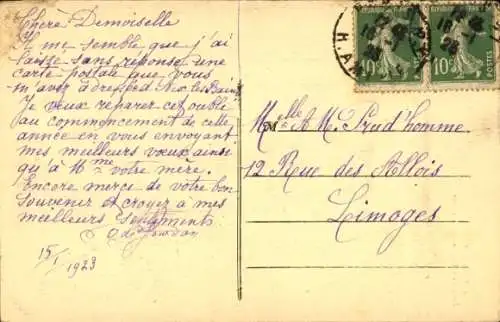 Chère Demoiselle
Il me semble que j'ai
laissé sans réponse une
carte postale que vous
m'avez adressée d'Aix les Bains
Je veux reparer cet oubli
au commencement de celle
année en vous envoyant
mes meilleurs vœux ainsi
qu'à Mme votre mère.
Encore merci de votre bon
souvenir et croyez à mes
meilleurs sentiments
15/1 1923
Melle A. M. Prud'homme
12 Rue des Allois
Limoges
10c
10c
POSTES